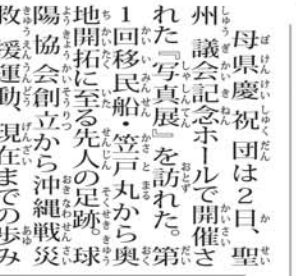 母県慶祝団は2日、聖
州議会記念ホールで開催さ
れた『写真展』を訪れた。第
1回移民船・笠戸丸から奥
地開拓に至る先人の足跡。球
陽協会創立から沖縄戦災
救援運動、現在までの歩み